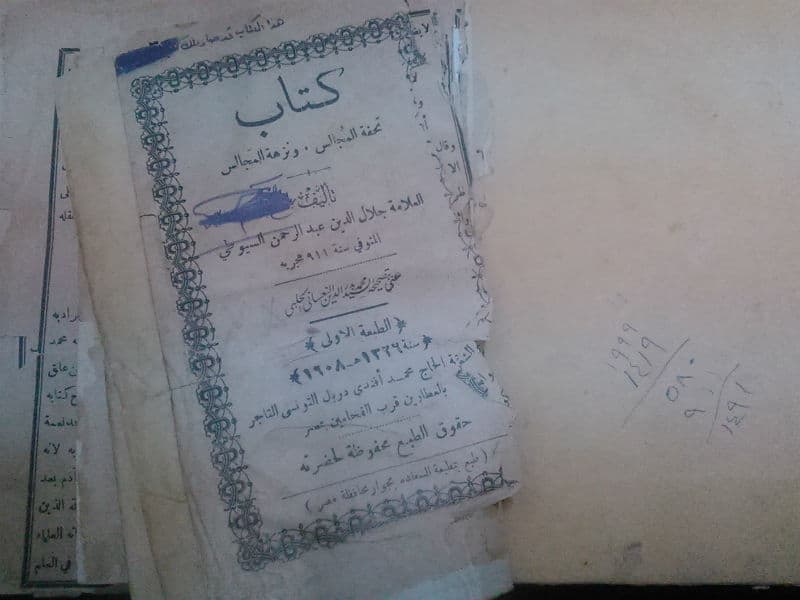 هذا الكتاب قد صار ملك
كتاب
تحفة المجالس . ونزهة المجالس
تأليف
العلامة جلال الدين عبد الرحمن السيوطي
المتوفي سنة ٩١١ هجريه
عني بتصحيحه محمد بدر الدين النعساني الحلبي
﴿ الطبعة الاولى ﴾
﴿ سنة ١٣٢٦هـ - ١٩٠٨م ﴾
الحاج محمد أفندي دربل التونسى التاجر
بالعطارين قرب الفحامين بمصر
حقوق الطبع محفوظة لحضرته
( طبع بمطبعة السعاده بجوار محافظة مصر )
وقال
محمد
كتابه
به لأنه
آدم بعد
الذين
العلماء
في العام
١٩٩٩
١٤١٩
٥٨٠
٩١١
١٤٩١